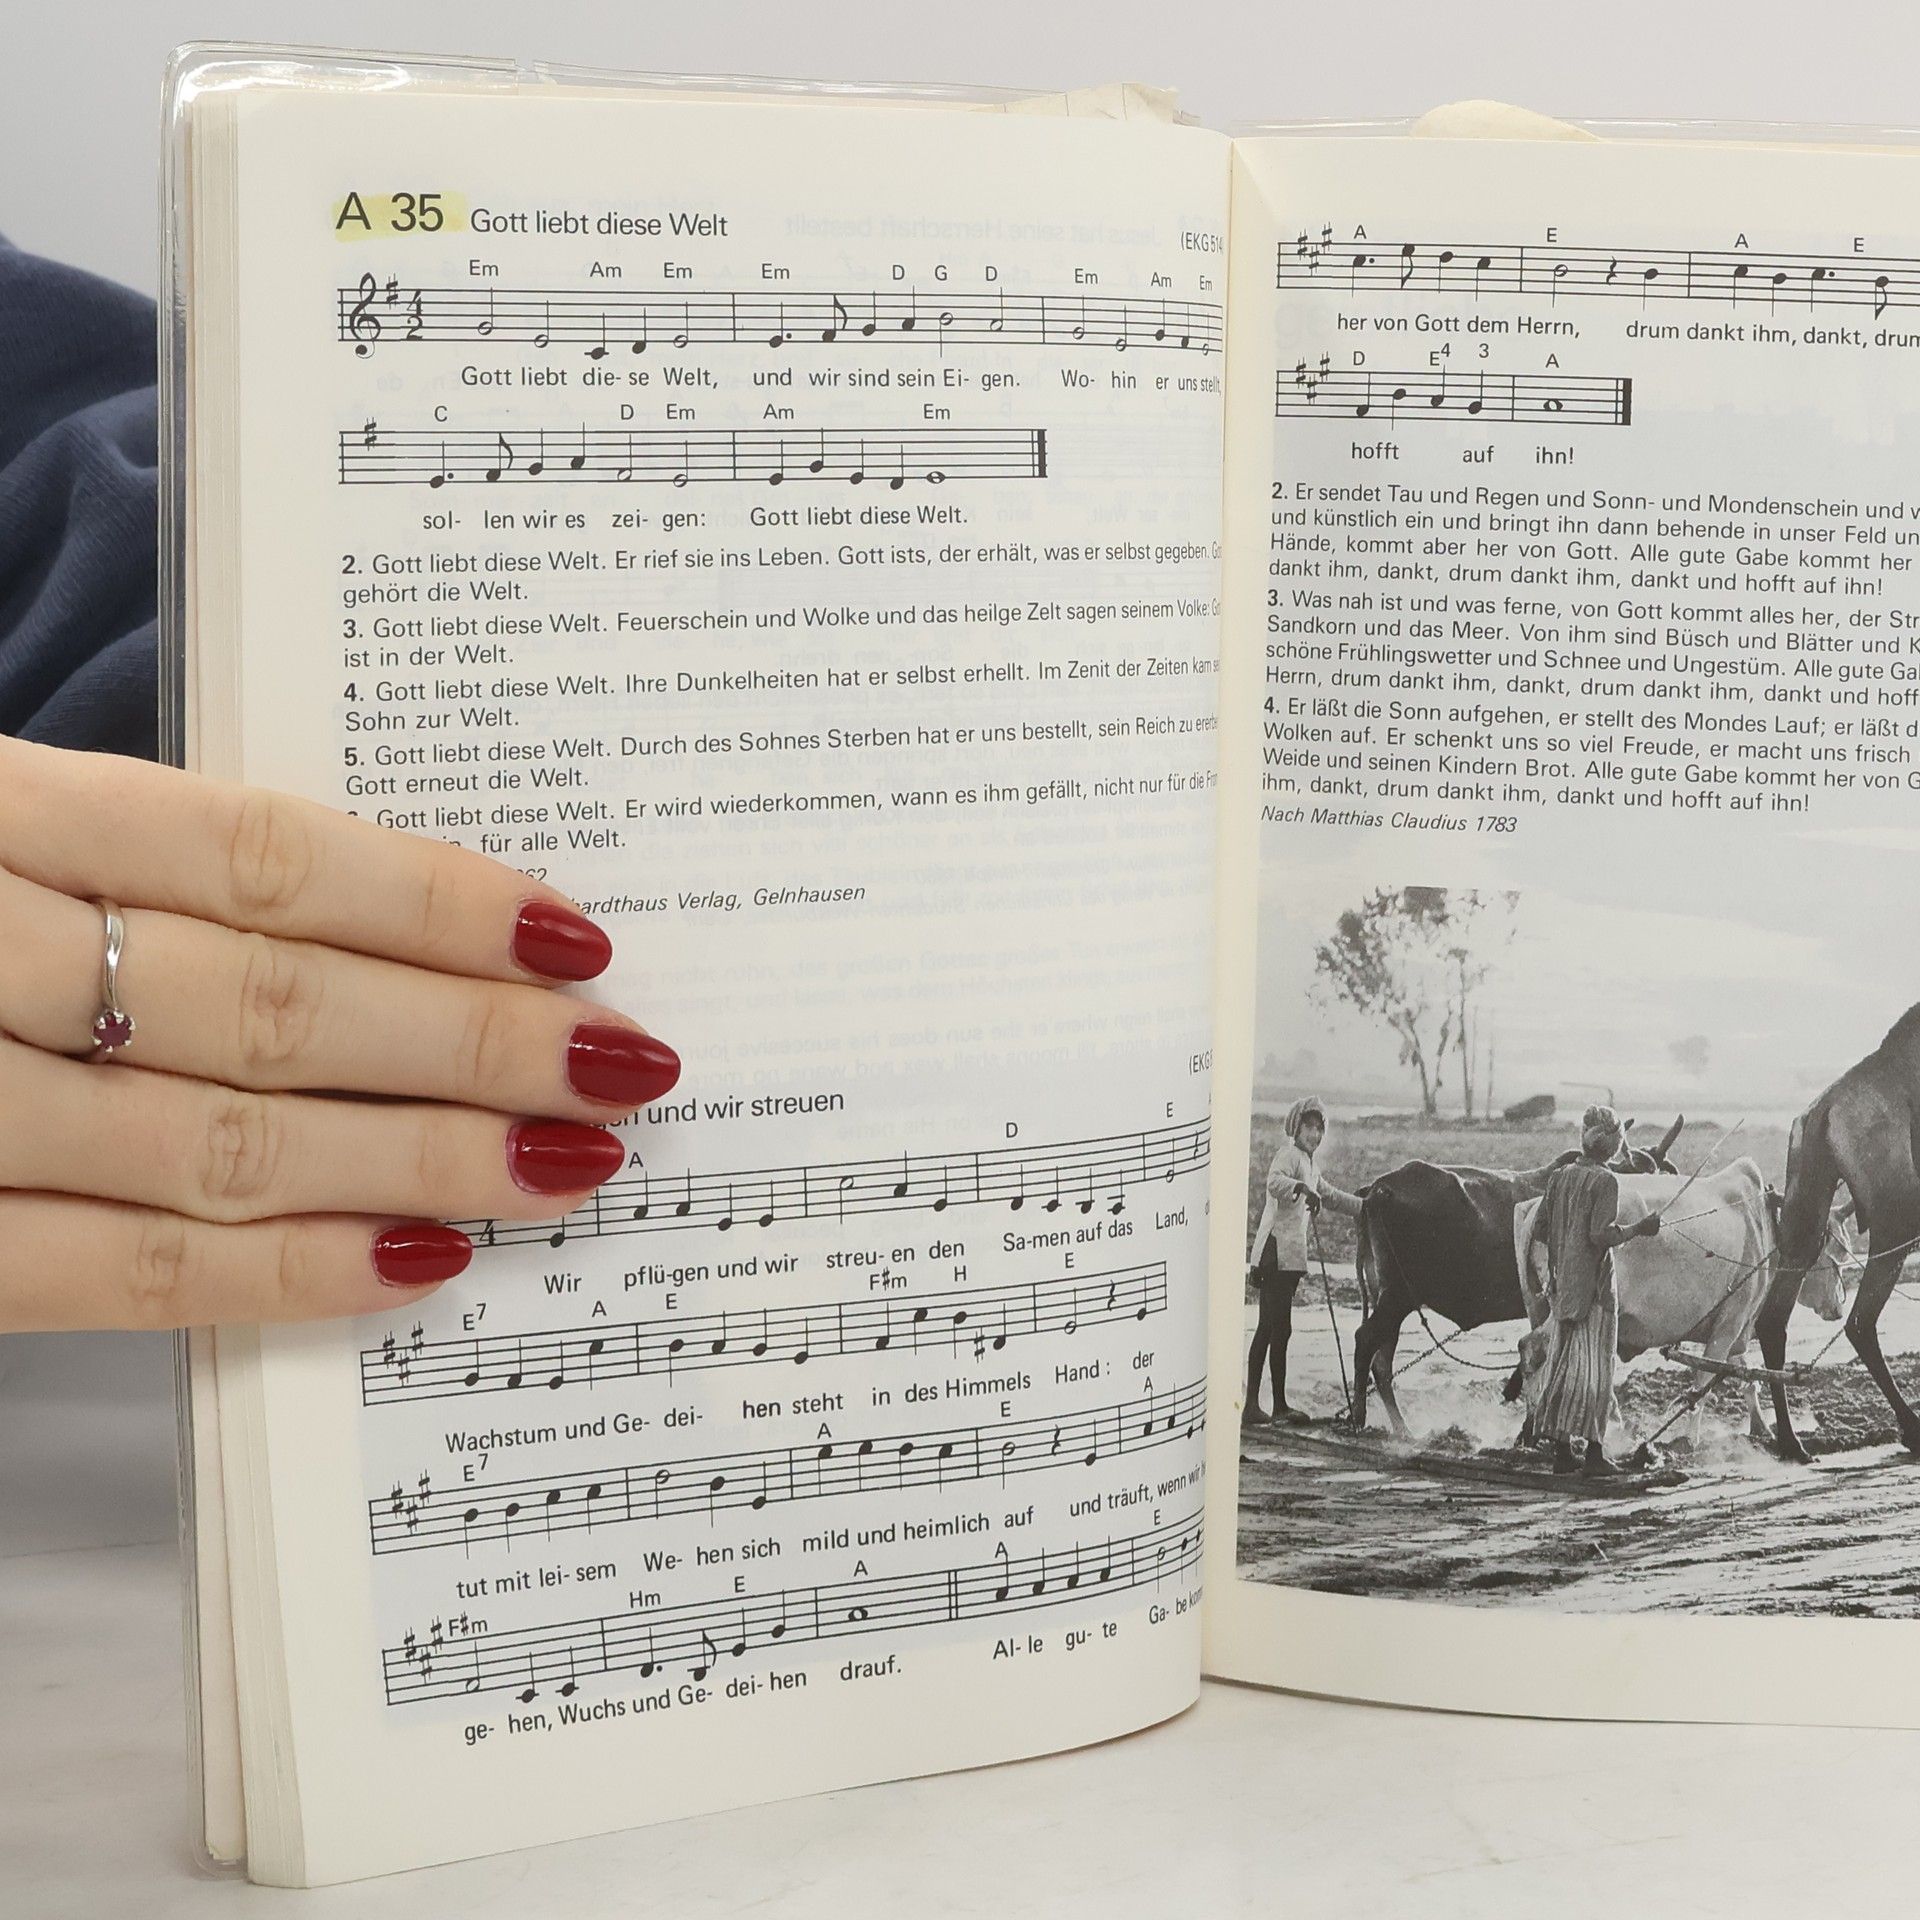 A 35 Gott liebt diese Welt
(EKG 514
Em Am Em Em D G D Em Am Em
4
2
Gott liebt die- se Welt, und wir sind sein Ei- gen. Wo- hin er uns stellt,
C D Em Am Em
sol- len wir es zei- gen: Gott liebt diese Welt.
2. Gott liebt diese Welt. Er rief sie ins Leben. Gott ists, der erhält, was er selbst gegeben.
gehört die Welt.
3. Gott liebt diese Welt. Feuerschein und Wolke und das heilge Zelt sagen seinem Volke:
ist in der Welt.
4. Gott liebt diese Welt. Ihre Dunkelheiten hat er selbst erhellt. Im Zenit der Zeiten kam
Sohn zur Welt.
5. Gott liebt diese Welt. Durch des Sohnes Sterben hat er uns bestellt, sein Reich zu
Gott erneut die Welt.
Gott liebt diese Welt. Er wird wiederkommen, wann es ihm gefällt, nicht nur für die
für alle Welt.
62
hardthaus Verlag, Gelnhausen
(EKG
und wir streuen
A D E
4
Wir pflü-gen und wir streu- en den Sa-men auf das Land,
E7 A E F#m H E
Wachstum und Ge- dei- hen steht in des Himmels Hand : der
E7 A E A
tut mit lei- sem We- hen sich mild und heimlich auf und träuft, wenn wir
F#m Hm E A A E
ge- hen, Wuchs und Ge- dei- hen drauf. Al- le gu- te Ga- be
A E A E
her von Gott dem Herrn, drum dankt ihm, dankt, drum
D E4 3 A
hofft auf ihn!
2. Er sendet Tau und Regen und Sonn- und Mondenschein und
und künstlich ein und bringt ihn dann behende in unser Feld
Hände, kommt aber her von Gott. Alle gute Gabe kommt her
dankt ihm, dankt, drum dankt ihm, dankt und hofft auf ihn!
3. Was nah ist und was ferne, von Gott kommt alles her, der
Sandkorn und das Meer. Von ihm sind Büsch und Blätter und
schöne Frühlingswetter und Schnee und Ungestüm. Alle gute
Herrn, drum dankt ihm, dankt, drum dankt ihm, dankt und
4. Er läßt die Sonn aufgehen, er stellt des Mondes Lauf; er läßt
Wolken auf. Er schenkt uns so viel Freude, er macht uns frisch
Weide und seinen Kindern Brot. Alle gute Gabe kommt her von
ihm, dankt, drum dankt ihm, dankt und hofft auf ihn!
Nach Matthias Claudius 1783